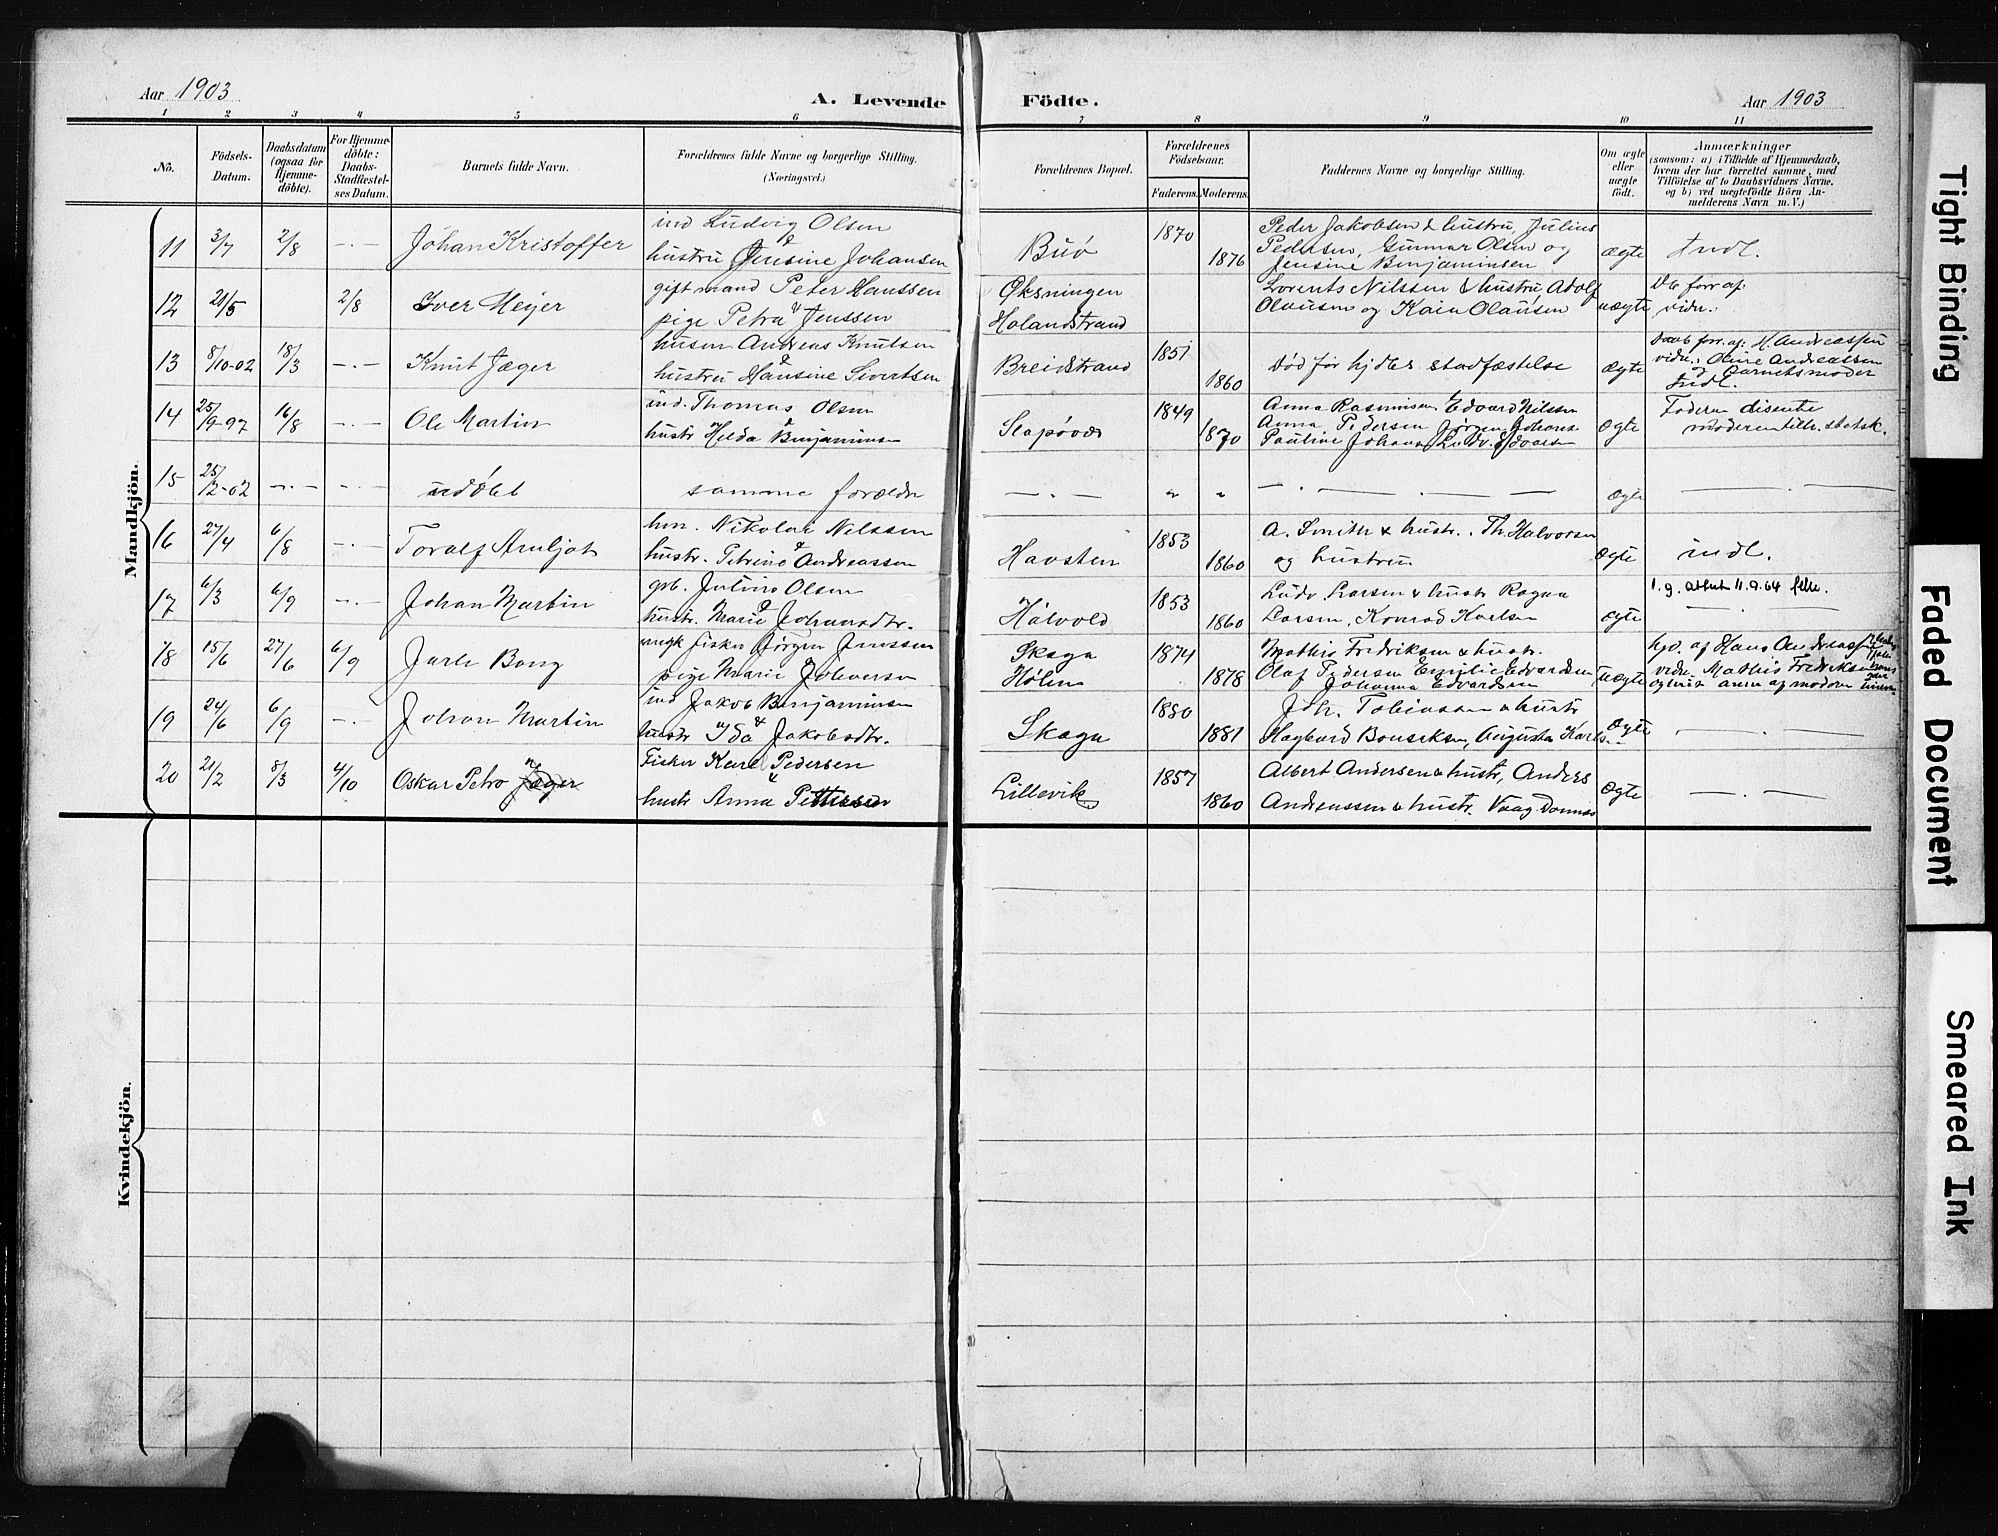 Aar 1903
A. Levende Födte.
Aar 1903
1 2 3 4 5 6 7 8 9 10 11
No.
Födsels-Datum.
Daabsdatum (ogsaa for Hjemme-döbte).
For Hjemme-döbte: Daabs-Stadfæstel-ses Datum.
Barnets fulde Navn.
Forældrenes fulde Navne og borgerlige Stilling.
(Næringsvei.)
Forældrenes Bopæl.
Forældrenes Födselsaar.
Faderens. Moderens.
Faddernes Navne og borgerlige Stilling.
Om ægte eller uægte födt.
Anmærkninger
(saasom: a) i Tilfælde af Hjemmedaab,
hvem der har forrettet samme, med
Tilföielse af to Daabsvidners Navne,
og b) ved uægtefödte Börn An-
melderens Navn m. V.)
Mandkjön.
11 3/7 2/8 -·- Johan Kristoffer
ind Ludvig Olsen &
hustru Jensine Johansen
Buø 1870 1876
Peder Jakobsen & hustru, Julius
Pedersen, Gunnar Olsen og
Jensine Benjaminsen
ægte Indl.
12 20/5 2/8 Iver Meyer
gift mand Peter Hanssen
pige Petra Jenssen
Øksningen
Holandstrand
Lorents Nilssen & hustru Adolf
Olausen og Kaia Olausen
uægte
vidn.:
13 8/10-02 18/3 -·- Knut Jæger
husm Andreas Knutsen &
hustru Hansine Sivertsen
Breidstrand 1851 1860
Død før hjdbs stadfæstelse
ægte
Daab forr. af: H. Andreassen
vidn.: Oline Andreassen
& Barnets moder
Indl.
14 25/9-97 16/8 -·- Ole Martin
ind. Thomas Olsen &
hustr Hilda Benjaminsen
Slapøvær 1849 1870
Anna Rasmussen, Edvard Nilssen
Anna Pedersen Jørgen Johans
Pauline Johans Ludv. Edvards
ægte
Faderen disente
moderen tilh. statsk.
15 25/2-02 -·- -·- udøbt
samme forældr
-·- " " -·-
ægte
16 27/4 6/8 -·- Toralf Arnljot
hm. Nikolai Nilssen &
hustr. Petrine Andreassen
Havsten 1853 1860
A. Smith & hustr.. Th. Halvorsen
og hustru.
ægte indl.
17 6/3 6/9 -·- Johan Martin
grb. Julius Olsen &
hustr. Marie Johansdtr.
Halvold 1853 1860
Ludv. Larsen & hustr Ragna
Larsen, Konrad Karlsen
ægte
1.g. attest 11.9.64
18 15/6 27/6 6/9 Jarle Bang
ungk fisker Jørgen Jenssen
pige Marie
Skaga
Holm 1874 1878
Mathis Fredriksen & hustr.
Olaf Pedersen Emilie Edvardsen
Johanna Edvardsen
uægte
hjd. af Hans Andreassen
vidn. Mathis Fredriksen
19 24/6 6/9 -·- Johan Martin
ind Jakob Benjaminsen &
hustr Ida Jakobsdtr.
Skaga 1880 1881
Joh. Tobiassen & hustr
Hagbard Bendiksen, Augusta Karls.
ægte -·-
20 21/2 8/3 4/10 Oskar Petro Jæger
Fisker Karl Pedersen &
hustr Anna Pettersen
Lillevik 1857 1860
Albert Andersen & hustr, Anders
Andreassen & hustr. Vaag. Dønnes
ægte -·-
Kvindekjön.
Tight Binding
Faded Document
Smeared Ink